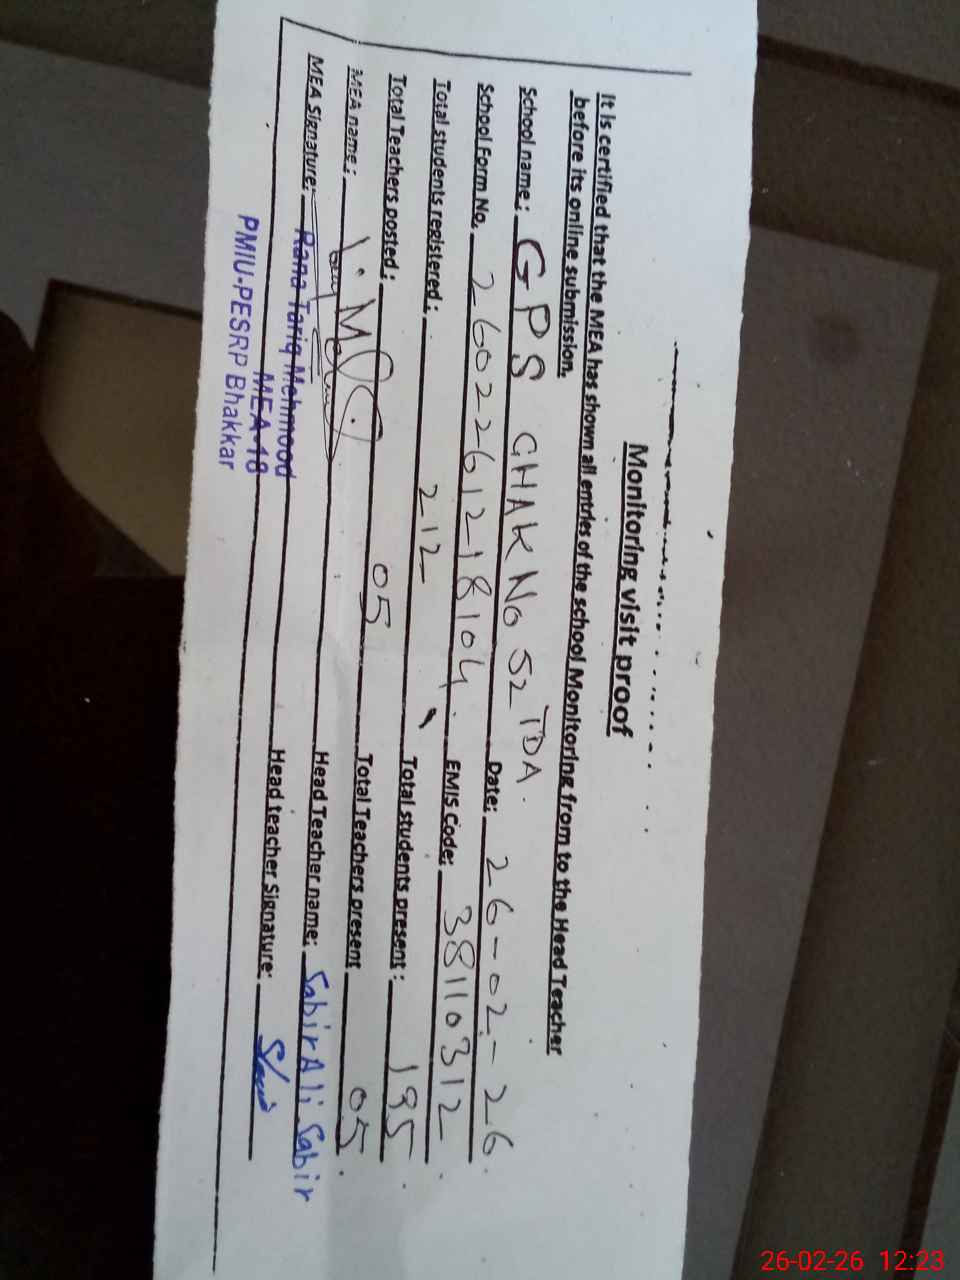 Monitoring visit proof
It is certified that the MEA has shown all entries of the school Monitoring from to the Head Teacher
before its online submission.
School name: GPS CHAK No 52 TDA. Date: 26-02-26.
School Form No. 2602261218104. EMIS Code: 38110312
Total students registered: 212 Total students present: 195
Total Teachers posted: 05 Total Teachers present 05.
MEA name: Head Teacher name: Sabir Ali Sabir
MEA Signature: Head teacher Signature:
Rana Tariq Mehmood
MEA-18
PMIU-PESRP Bhakkar
26-02-26 12:23